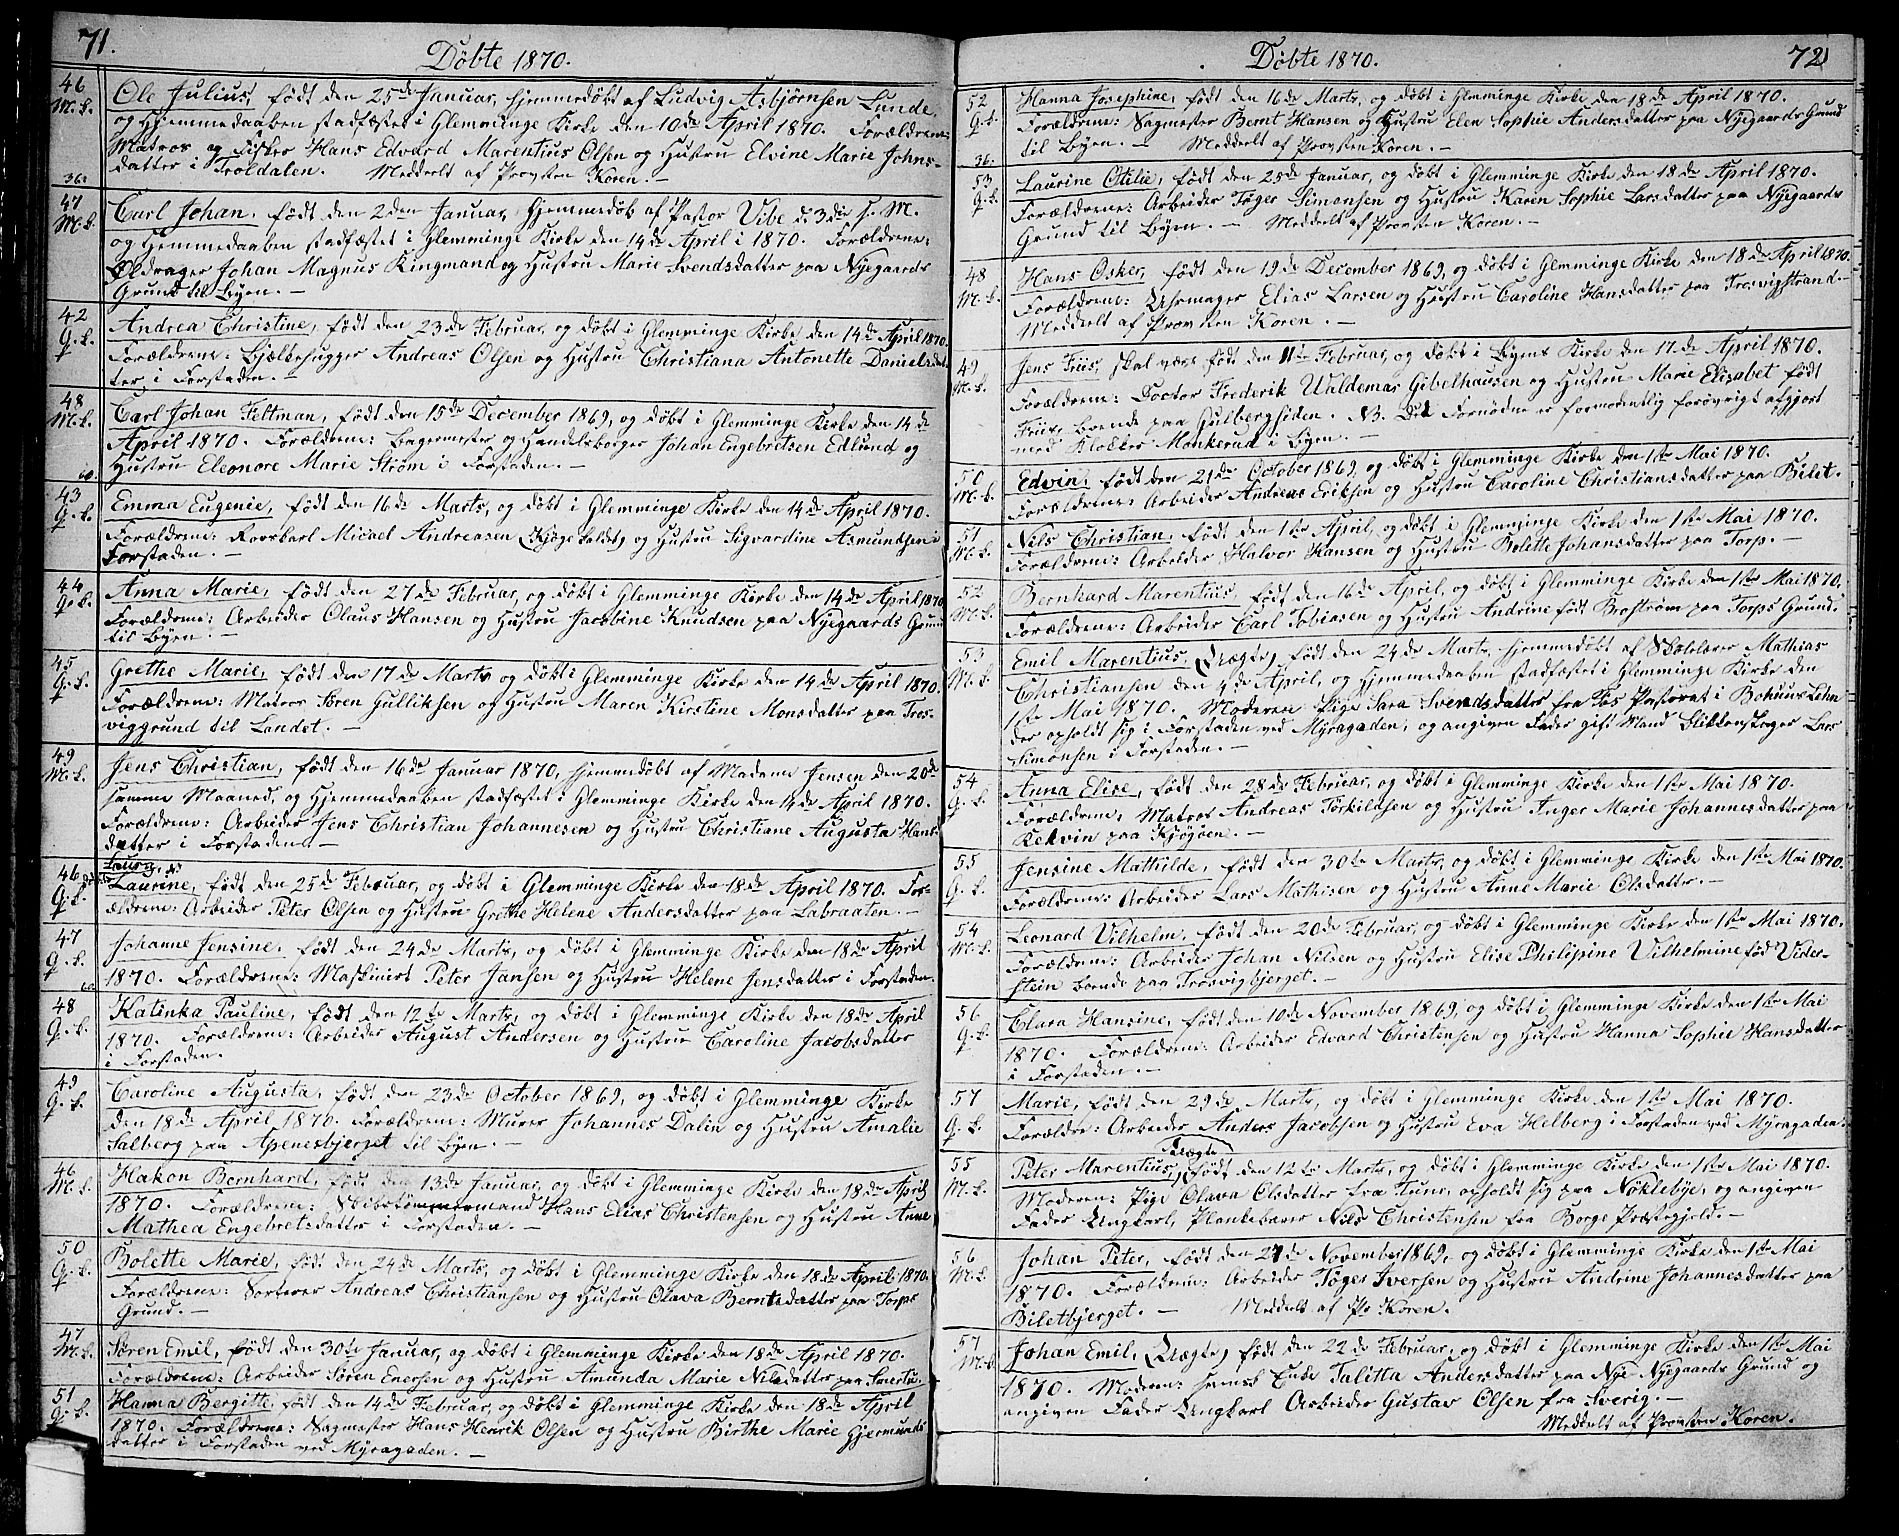 71.
Döbte 1870.
46
M.k.
Ole Julius, født den 25de Januar, hjemmedöbt af Ludvig Asbjørnsen Lunde,
og Hjemmedaaben stadfæstet i Glemminge Kirke den 10de April 1870. Forældrene:
Matros og Fisker Hans Edvard Marentius Olsen og Hustru Elvine Marie Johns-
datter i Troldalen. Meddelt af Provsten Koren. —
36.
47
M.k.
Carl Johan, født den 2den Januar, hjemmedöb af Pastor Vibe d: 3die s. M.
og Hjemmedaaben stadfæstet i Glemminge Kirke den 14de April i 1870. Forældrene:
Øldrager Johan Magnus Kingmand og Hustru Marie Svendsdatter paa Nyegaards
Grund til Byen. —
42
G.k.
Andrea Christine, født den 23de Februar, og döbt i Glemminge Kirke den 14de April 1870.
Forældrene: Bjælkehugger Andreas Olsen og Hustru Christiana Antonette Danielsdat-
ter i Forstaden. —
48
M.k.
Carl Johan Feltman, født den 15de December 1869, og döbt i Glemminge Kirke den 14de
April 1870. Forældrene: Bagermester og Handelsborger Johan Engebretsen Edlund og
Hustru Eleonore Marie Strøm i Forstaden. —
43
G.k.
Emma Eugenie, født den 16de Marts, og döbt i Glemminge Kirke den 14de April 1870.
Forældrene: Rorskarl Micael Andreasen (Kjøge kaldet) og Hustru Sigvardine Asmundsen i
Forstaden. —
44
G.k.
Anna Marie, født den 27de Februar, og döbt i Glemminge Kirke den 14de April 1870
Forældrene: Arbeider Olaus Hansen og Hustru Jacobine Knudsen paa Nyegaards Grund
til Byen. —
45
G.k.
Grethe Marie, født den 17de Marts og döbt i Glemminge Kirke den 14de April 1870.
Forældrene: Matros Søren Gulliksen og Hustru Maren Kirstine Monsdatter paa Tros-
viggrund til Landet. —
49
M.k.
Jens Christian, født den 16de Januar 1870, hjemmedöbt af Madame Jensen den 20de
samme Maaned, og Hjemmedaaben stadfæstet i Glemminge Kirke den 14de April 1870.
Forældrene: Arbeider Jens Christian Johannesen og Hustru Christiane Augusta Hans-
datter i Forstaden —
46
G.k.
Laurine, født den 25de Februar, og döbt i Glemminge Kirke den 18de April 1870. For-
ældrene: Arbeider Peter Olsen og Hustru Grethe Helene Andersdatter paa Labraaten. —
47
G.k.
Johanne Jensine, født den 24de Marts, og döbt i Glemminge Kirke den 18de April
1870. Forældrene: Maskinist Peter Jansen og Hustru Helene Jensdatter i Forstaden.
48
G.k.
Katinka Pauline, født den 12te Marts, og döbt i Glemminge Kirke den 18de April
1870. Forældrene: Arbeider August Andersen og Hustru Caroline Jacobsdatter
i Forstaden.
49
G.k.
Caroline Augusta, født den 23de October 1869, og döbt i Glemminge Kirke
den 18de April 1870. Forældrene: Murer Johannes Dalin og Hustru Amalie
Salberg paa Apenesbjerget til Byen. —
46
M.k.
Hakon Bernhard, født den 13de Januar, og döbt i Glemminge Kirke den 18de April
1870. Forældrene: Skibstömmermand Hans Elias Christensen og Hustru Anne
Mathea Engebretsdatter i Forstaden. —
50
G.k.
Bolette Marie, født den 24de Marts, og döbt i Glemminge Kirke den 18de April 1870.
Forældrene: Sorterer Andreas Christiansen og Hustru Olava Berntsdatter paa Torps
Grund. —
47
M.k.
Søren Emil, født den 30te Januar, og döbt i Glemminge Kirke den 18de April 1870.
Forældrene: Arbeider Søren Enersen og Hustru Amunda Marie Nilsdatter paa
51
G.k.
Hanna Bergitte, født den 14de Februar, og döbt i Glemminge Kirke den 18de April
1870. Forældrene: Sagmester Hans Henrik Olsen og Hustru Birthe Marie Gjermunds-
datter i Forstaden ved Myragaden. —
72
Döbte 1870.
52
G.k.
Hanna Josephine, født den 16de Marts, og döbt i Glemminge Kirke den 18de April 1870.
Forældrene: Sagmester Bernt Hansen og Hustru Elen Sophie Andersdatter paa Nyegaards Grund
til Byen. — Meddelt af Provsten Koren. —
36.
53
G.k.
Laurine Otilie, født den 25de Januar, og döbt i Glemminge Kirke den 18de April 1870.
Forældrene: Arbeider Töger Simonsen og Hustru Karen Sophie Larsdatter paa Nyegaards
Grund til Byen. — Meddelt af Provsten Koren. —
48
M.k.
Hans Osker, født den 19de December 1869, og döbt i Glemminge Kirke den 18de April 1870.
Forældrene: Uhrmager Elias Larsen og Hustru Caroline Hansdatter paa Trosvigstrand. —
Meddelt af Provsten Koren. —
49
M.k.
Jens Friis, skal være født den 11te Februar, og döbt i Byens Kirke den 17de April 1870.
Forældrene: Doctor Frederik Waldemar Gibelhausen og Hustru Marie Elisabet født
Friis, boende paa Gulbergsiden. NB. Det Fornødne er formodentlig forøvrigt afgjort
med Klokker Monkerud i Byen. —
50
M.k.
Edvin, født den 21de October 1869, og döbt i Glemminge Kirke den 1ste Mai 1870.
Forældrene: Arbeider Andreas Eriksen og Hustru Caroline Christiansdatter paa Bilet.
51
M.k.
Nils Christian, født den 1ste April, og döbt i Glemminge Kirke den 1ste Mai 1870.
Forældrene: Arbeider Halvor Hansen og Hustru Bolette Johansdatter paa Torp. —
52
M.k.
Bernhard Marentius, født den 16de April, og döbt i Glemminge Kirke den 1ste Mai 1870.
Forældrene: Arbeider Carl Tobiasen og Hustru Andrine født Broström paa Torps Grund.
53
M.k.
Emil Marentius, (Uægte) født den 24de Marts, hjemmedöbt af Skolelærer Mathias
Christiansen den 4de April, og Hjemmedaaben stadfæstet i Glemminge Kirke den
1ste Mai 1870. Moderen Pige Sara Svendsdatter fra Fos Pastorat i Bohuus Lehn
der opholdt sig i Forstaden ved Myragaden, og angiven Fader gift Mand Blikkenslager Lars
Simonsen i Forstaden. —
54
G.k.
Anna Elise, født den 28de Februar, og döbt i Glemminge Kirke den 1ste Mai 1870.
Forældrene: Matros Andreas Torkildsen og Hustru Inger Marie Johannesdatter paa
Rekvin paa Kjøgøen. —
55
G.k.
Jensine Mathilde, født den 30te Marts, og döbt i Glemminge Kirke den 1ste Mai 1870.
Forældrene: Arbeider Lars Mathisen og Hustru Anne Marie Olsdatter. —
54
M.k.
Leonard Vilhelm, født den 20de Februar, og döbt i Glemminge Kirke den 1ste Mai 1870.
Forældrene: Arbeider Johan Nilsen og Hustru Elise Philipine Vilhelmine fød Vider-
stein boende paa Trosvigbjerget. —
56
G.k.
Clara Hansine, født den 10de November 1869, og döbt i Glemminge Kirke den 1ste Mai
1870. Forældrene: Arbeider Edvard Christensen og Hustru Hanna Sophie Hansdatter
i Forstaden. —
57
G.k.
Marie, født den 29de Marts, og döbt i Glemminge Kirke den 1ste Mai 1870.
Forældre: Arbeider Anders Jacobsen og Hustru Eva Helberg i Forstaden ved Myragaden.
55
M.k.
Uægte
Peter Marentius, født den 12te Marts, og döbt i Glemminge Kirke den 1ste Mai 1870.
Moderen: Pige Olava Olsdatter fra Tune, opholdt sig paa Nöklebye, og angiven
Fader Ungkarl, Plankebærer Nils Christensen fra Borge Præstegjeld. —
56
M.k.
Johan Peter, født den 27de November 1869, og döbt i Glemminge Kirke den 1ste Mai
1870. Forældrene: Arbeider Töger Iversen og Hustru Andrine Johannesdatter paa
Biletbjerget. — Meddelt af Pr Koren.
57
M.k.
Johan Emil, (Uægte) født den 22de Februar, og döbt i Glemminge Kirke den 1ste Mai
1870. Moderen: Enke Talitta Andersdatter paa Nye Nyegaards Grund og
angiven Fader Ungkarl Arbeider Gustav Olsen fra Sverig. —
Meddelt af Provsten Koren.